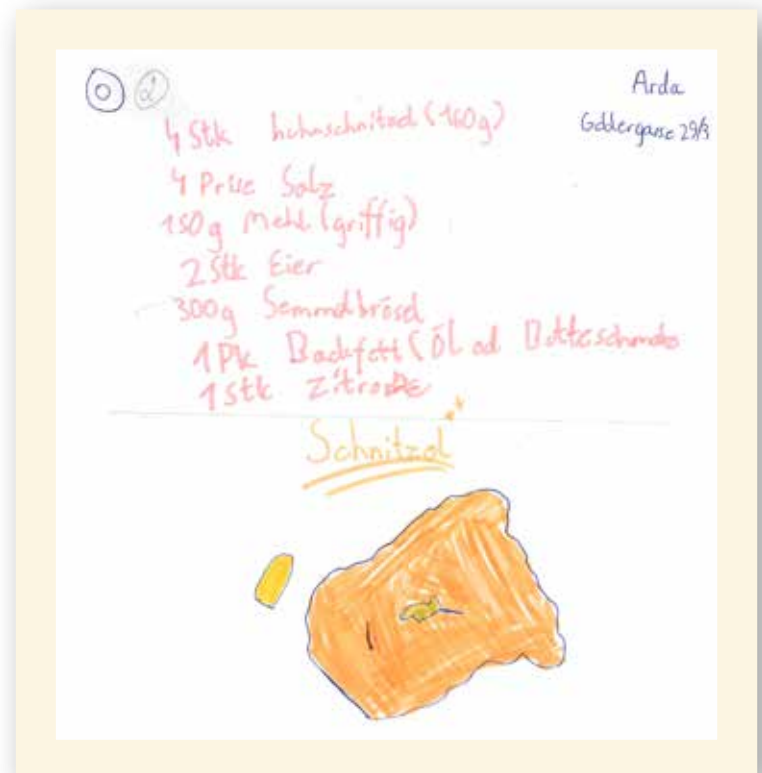 ② Arda
4 Stk huhnschnitzel (160g)
4 Prise Salz
150g Mehl (griffig)
2 Stk Eier
300g Semmelbrösel
1 Pk Backfett (Öl od
1 Stk Zitrone
Schnitzel